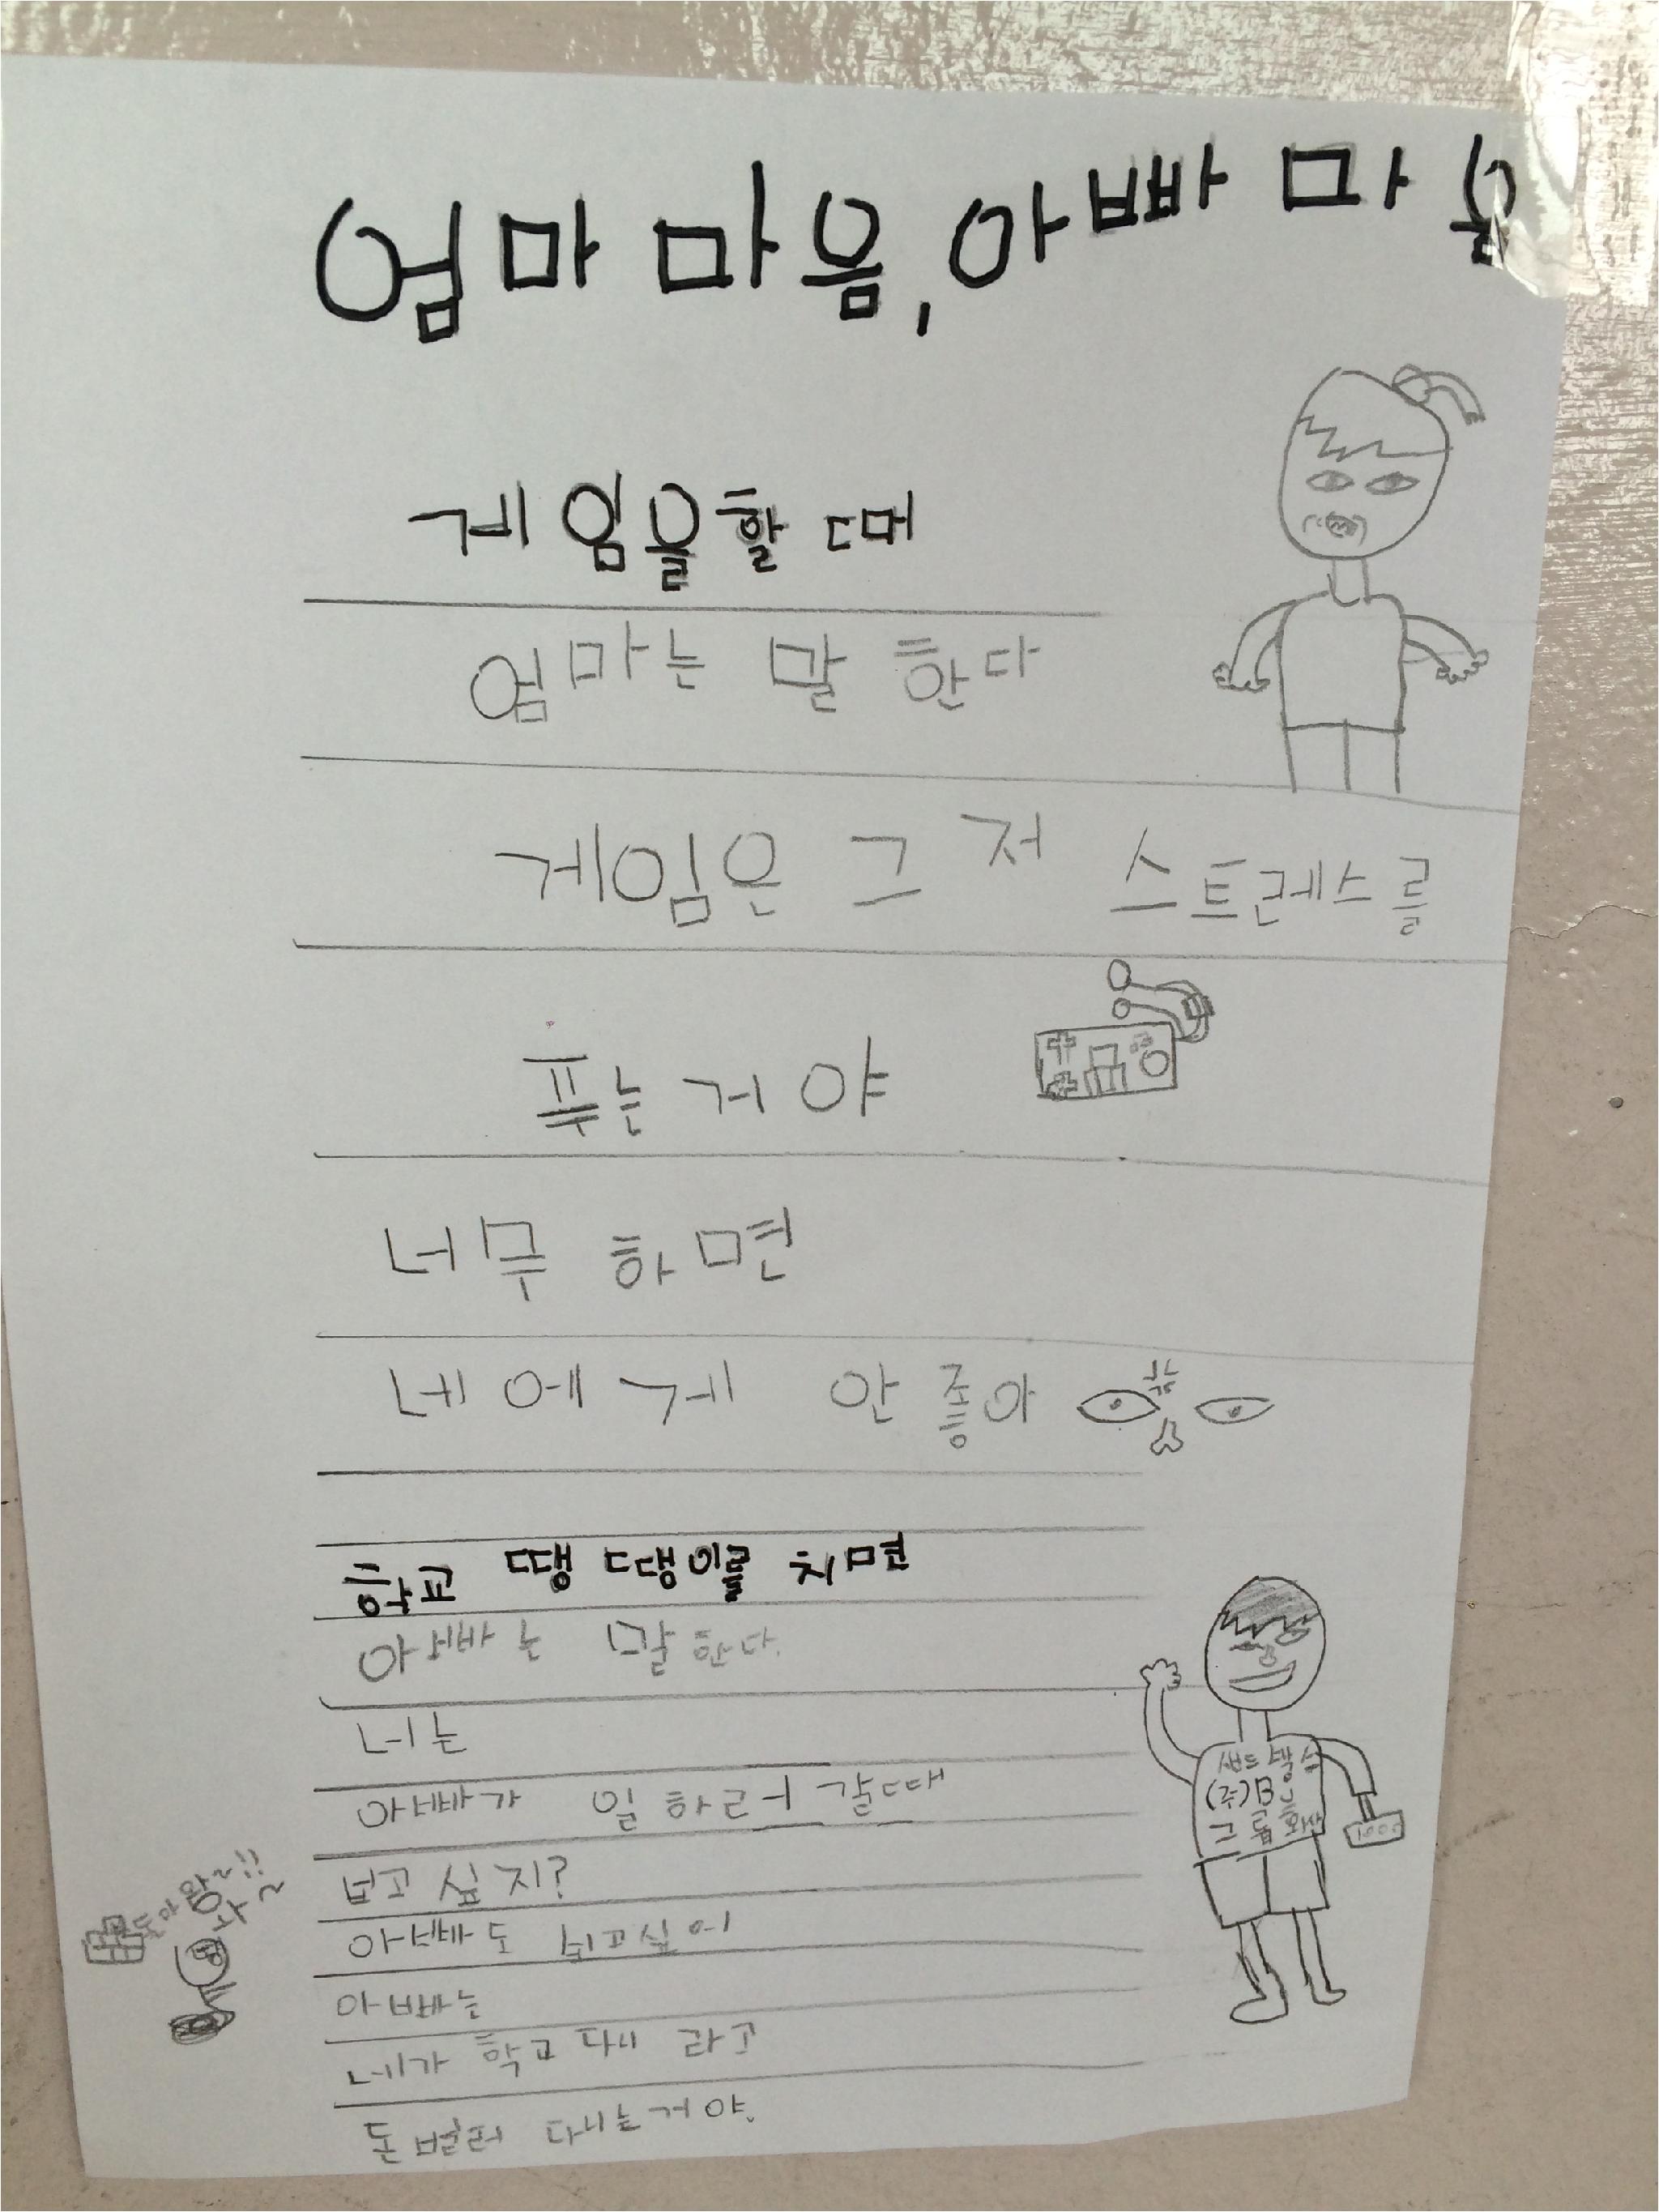 엄마 마음, 아빠 마음
게임을 할 때
엄마는 말 한다
게임은 그저 스트레스를
푸는 거야
너무 하면
네에게 안 좋아
학교 땡땡이를 치면
아빠는 말한다
너는
아빠가 일 하러 갈때
보고 싶지?
아빠도 보고싶어
아빠는
네가 학교 다니라고
돈 벌러 다니는거야
샌드
(주)B
그룹 회사
1000